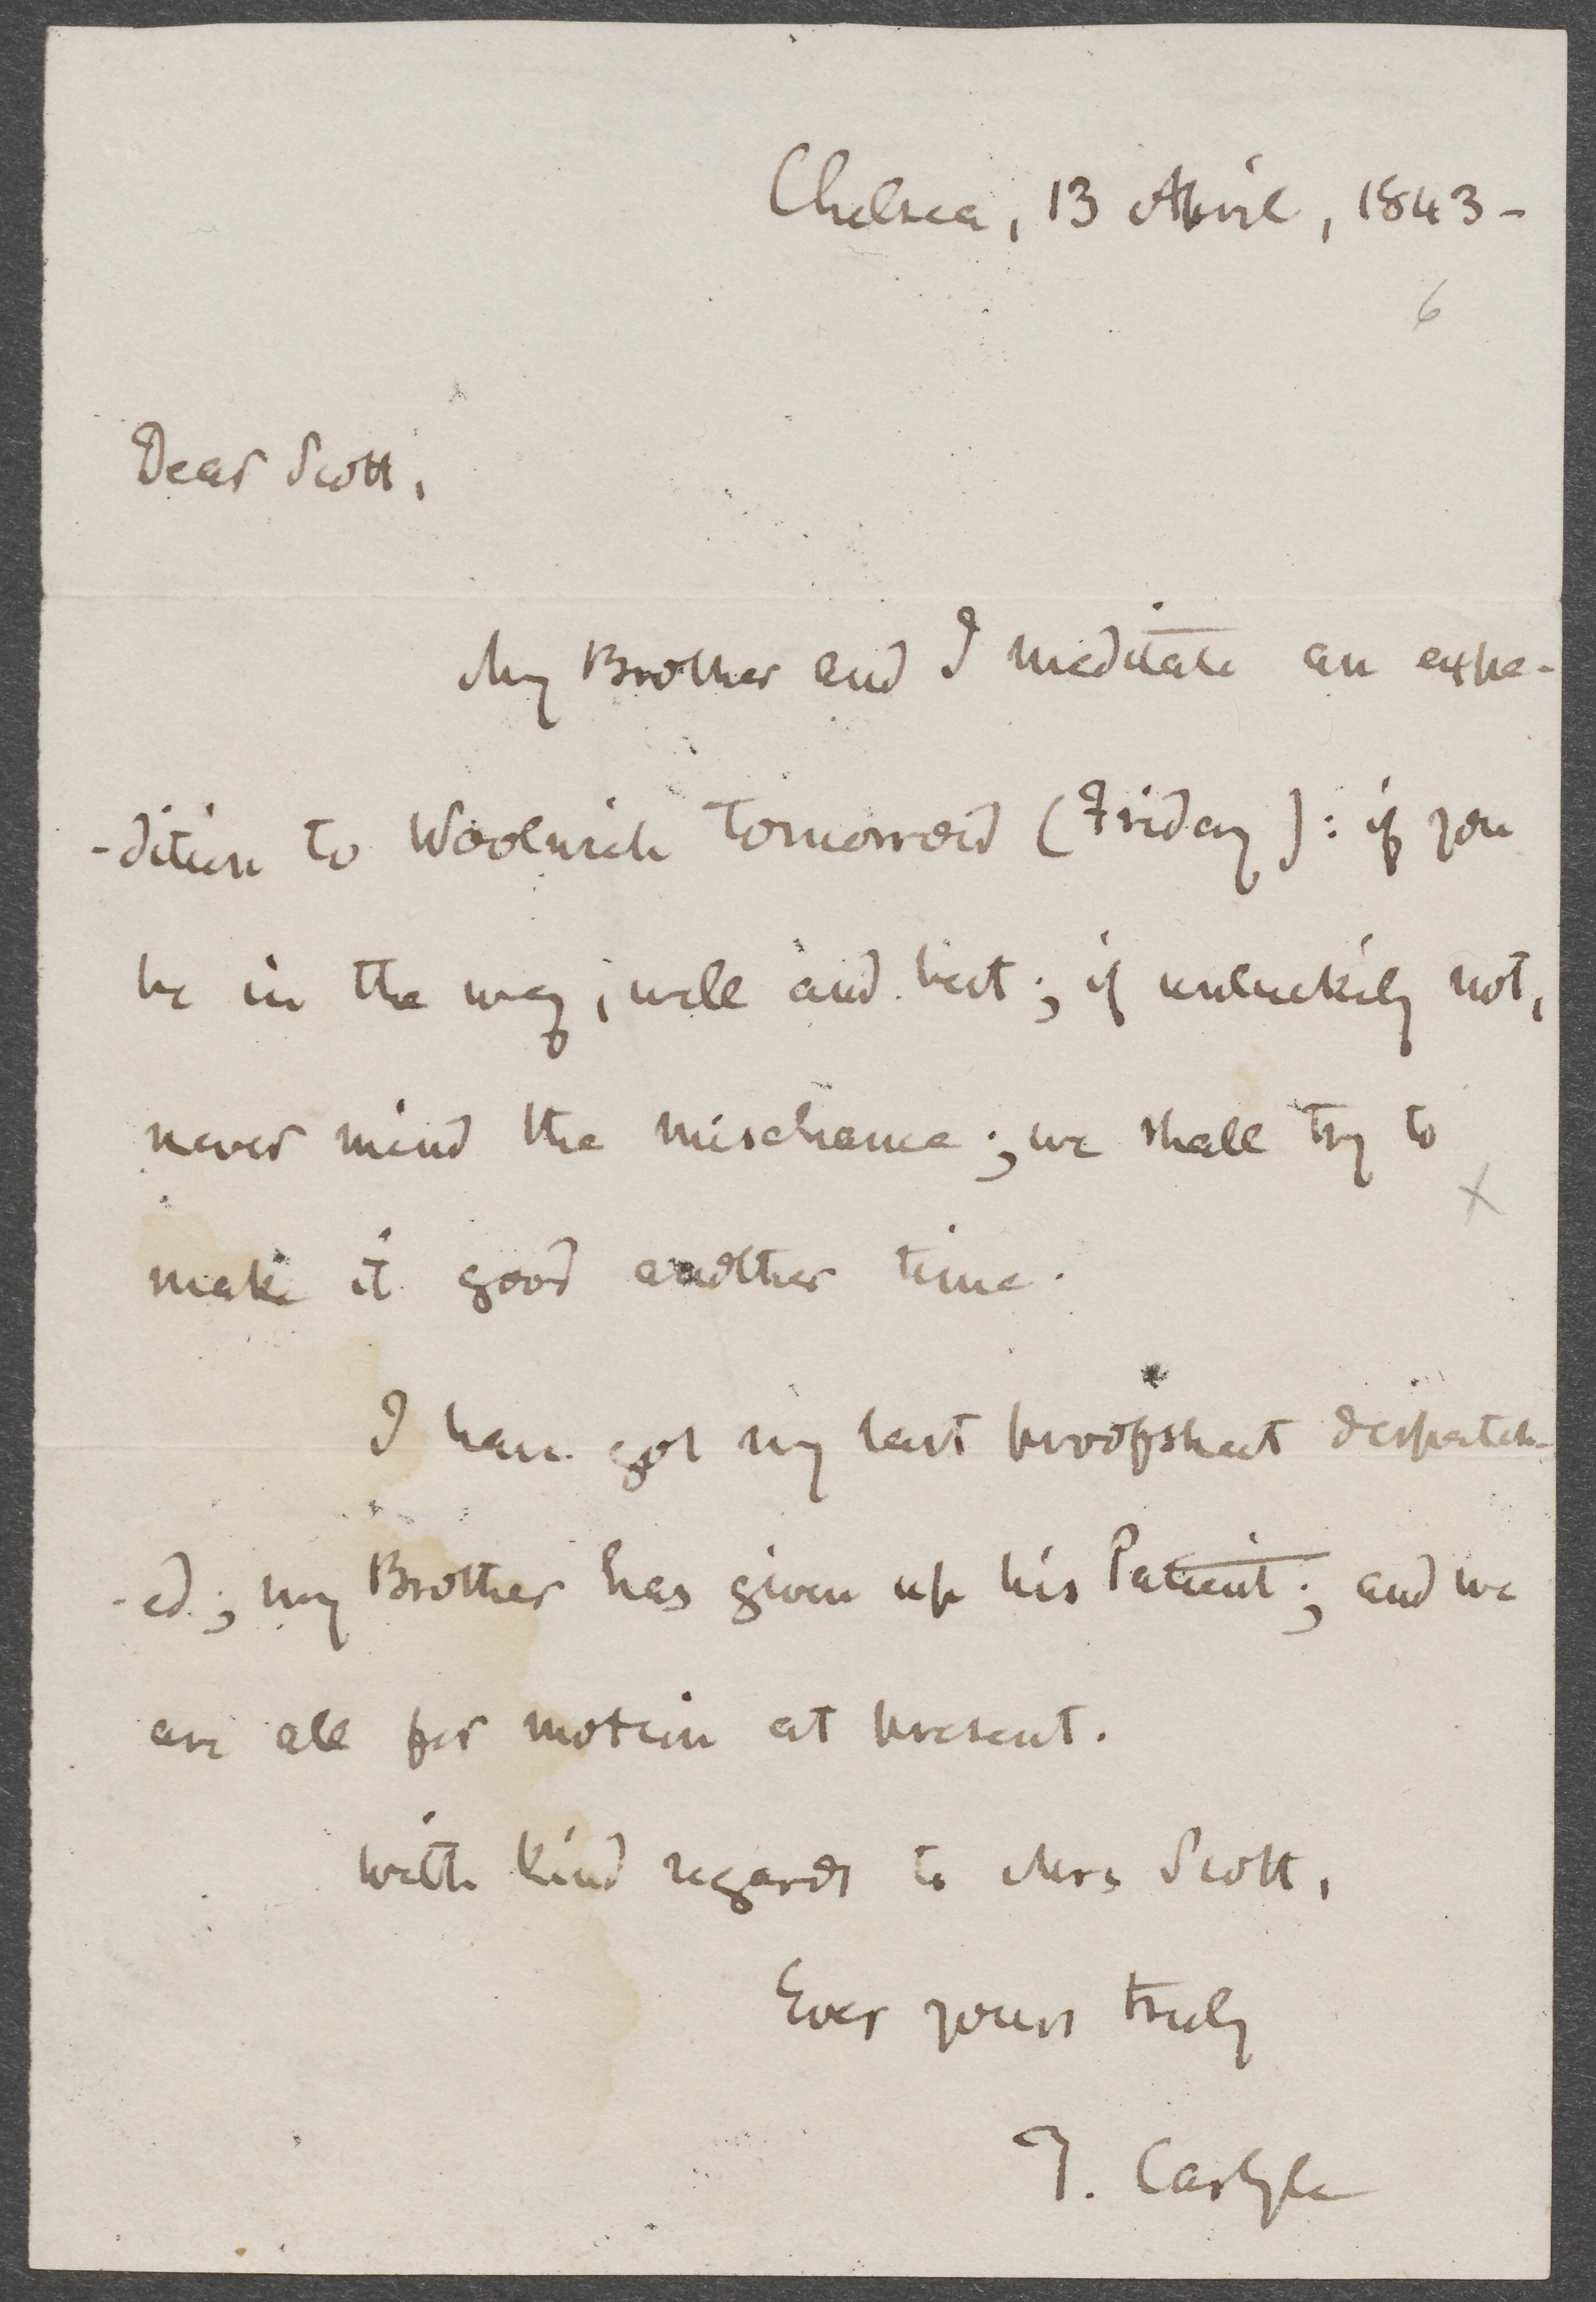 Chelsea, 13 April, 1843 -
6
Dear Scott,
My Brother and I meditate an expe-
-dition to Woolwich tomorrow (Friday): if you
be in the way, well and best; if unluckily not,
never mind the mischance; we shall try to
x
make it good another time.
I have got my last proofsheet despatch-
-ed; my Brother has given up his Patient; and we
are all for motion at present.
With kind regards to Mrs Scott,
Ever yours truly
T. Carlyle